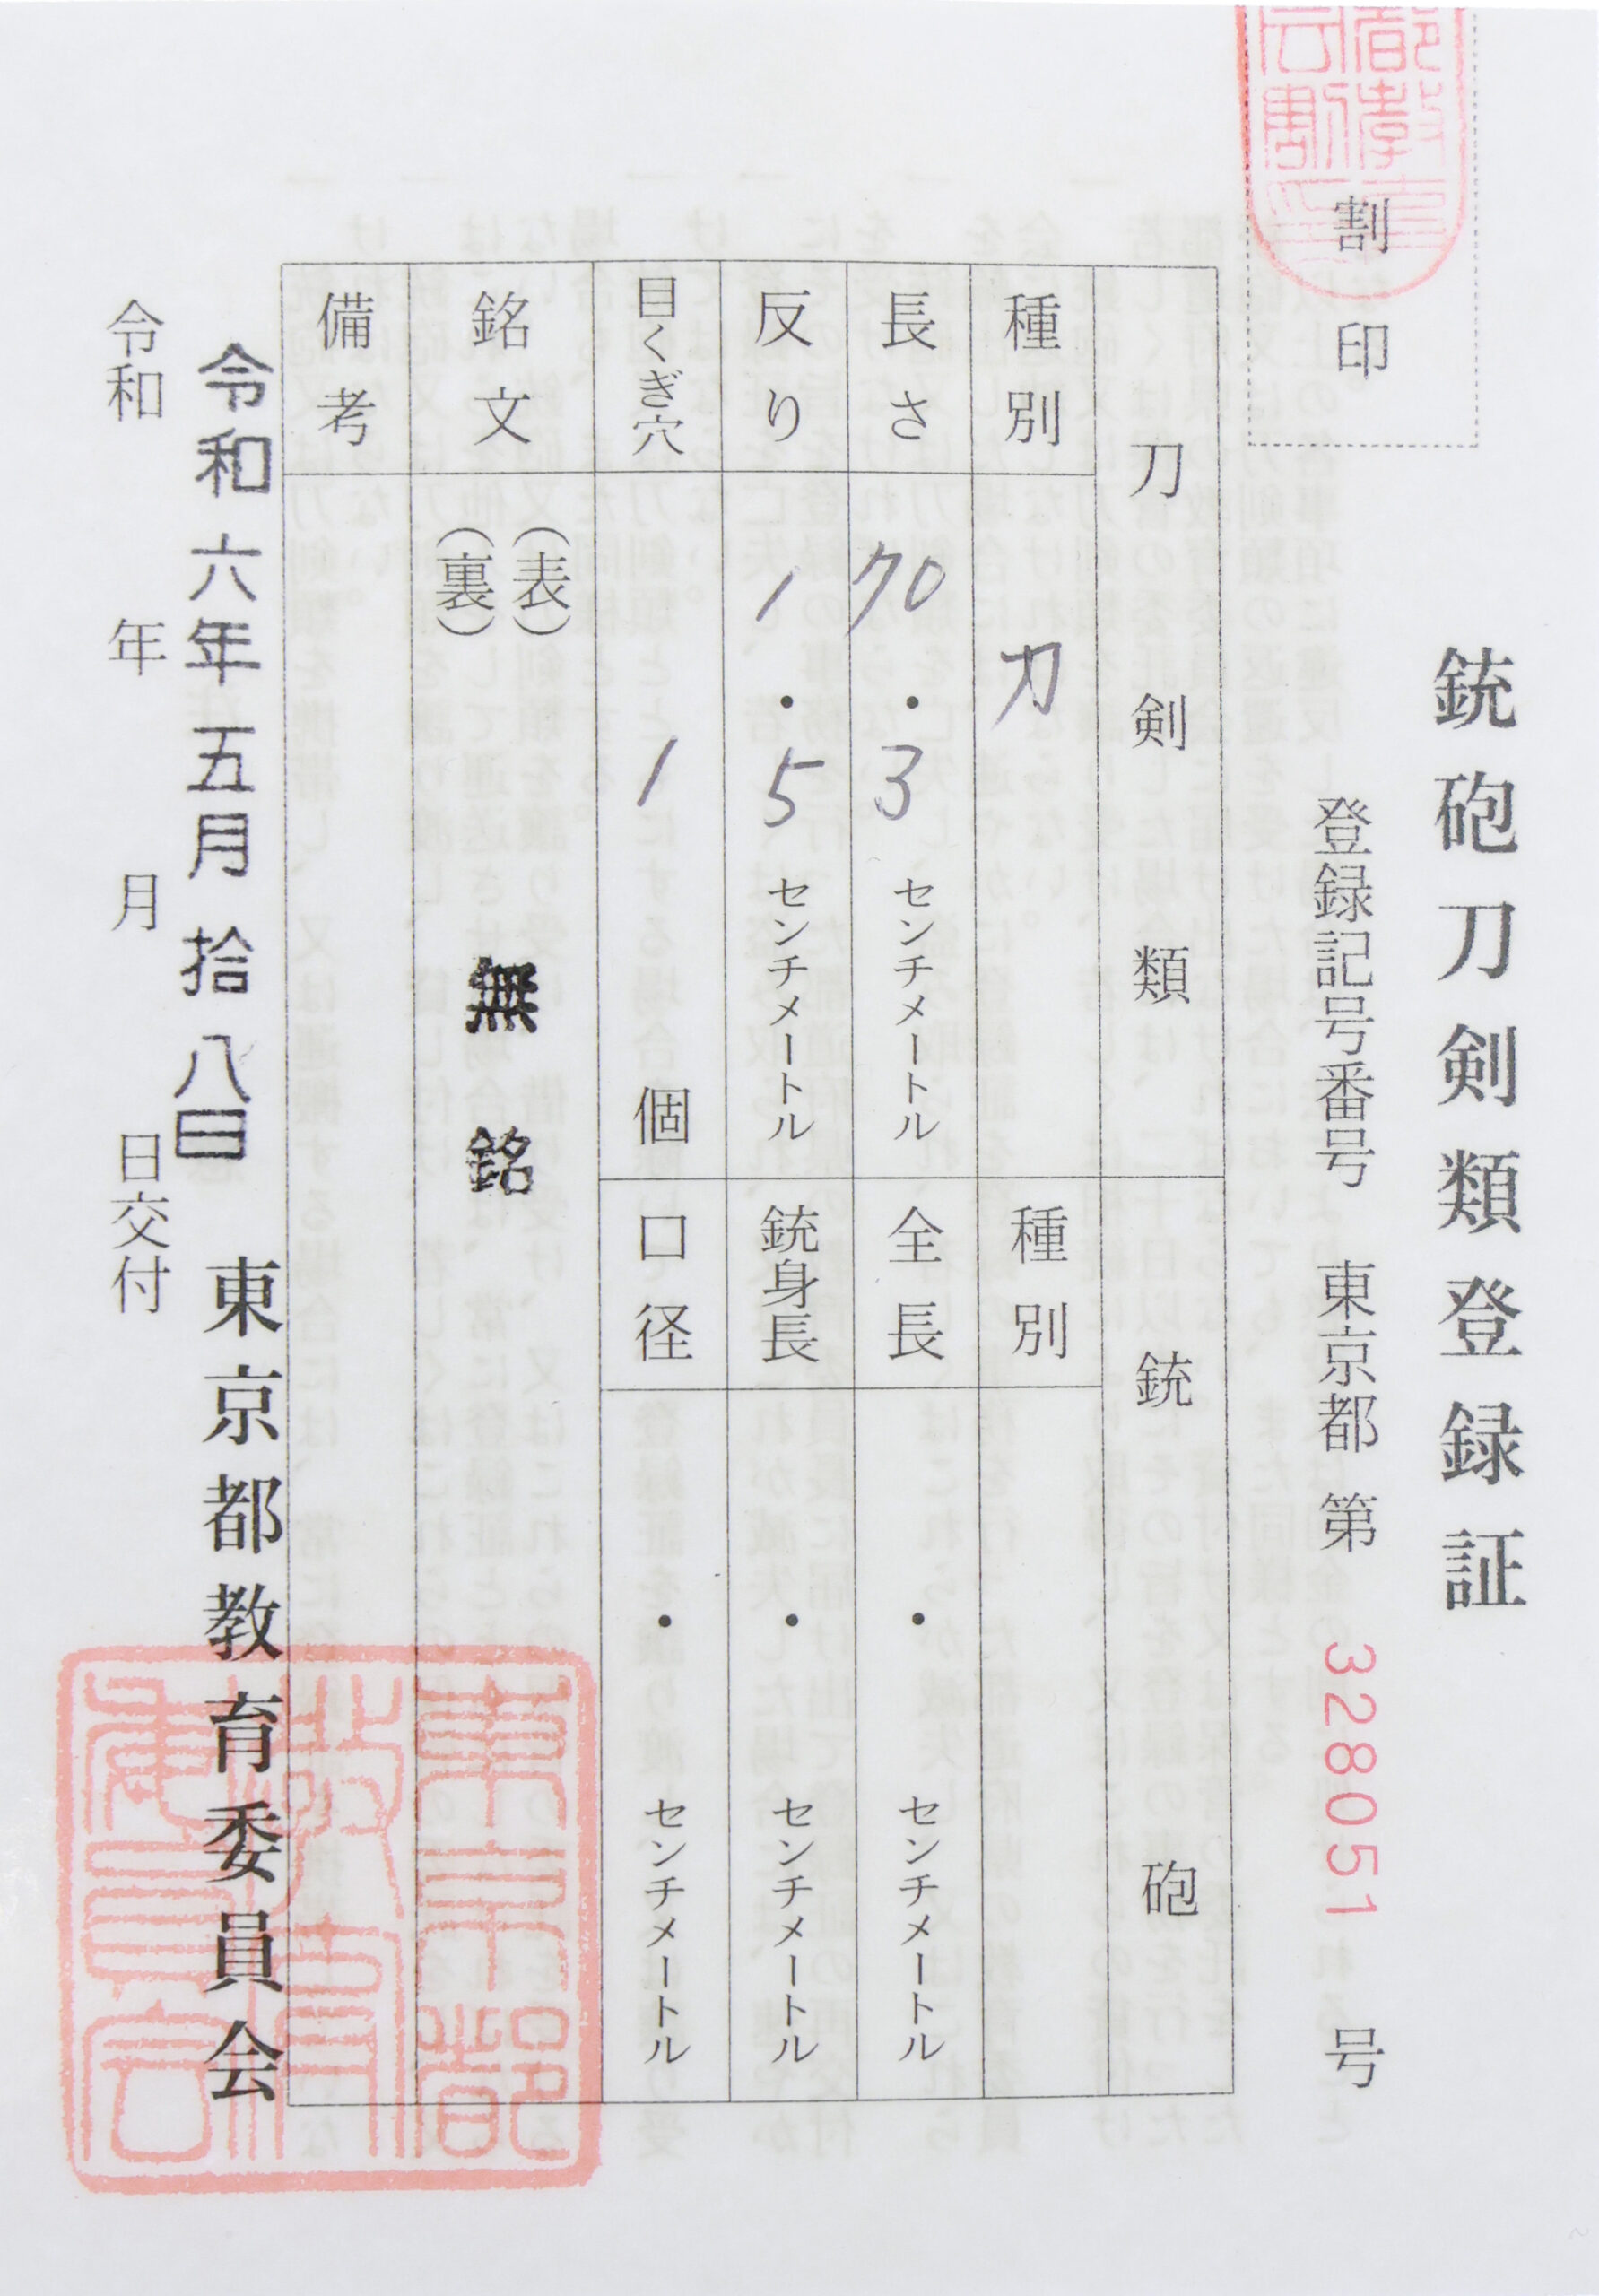 銃砲刀剣類登録証
登録記号番号　東京都　第　328051　号
割印
刀剣類
銃砲
種別　刀
長さ　70・3センチメートル
反り　1・5センチメートル
目くぎ穴　1個
種別
全長　・　センチメートル
銃身長　・　センチメートル
口径　・　センチメートル
銘文　（表）
（裏）
無銘
備考
令和六年五月拾八日
東京都教育委員会
令和　年　月　日交付